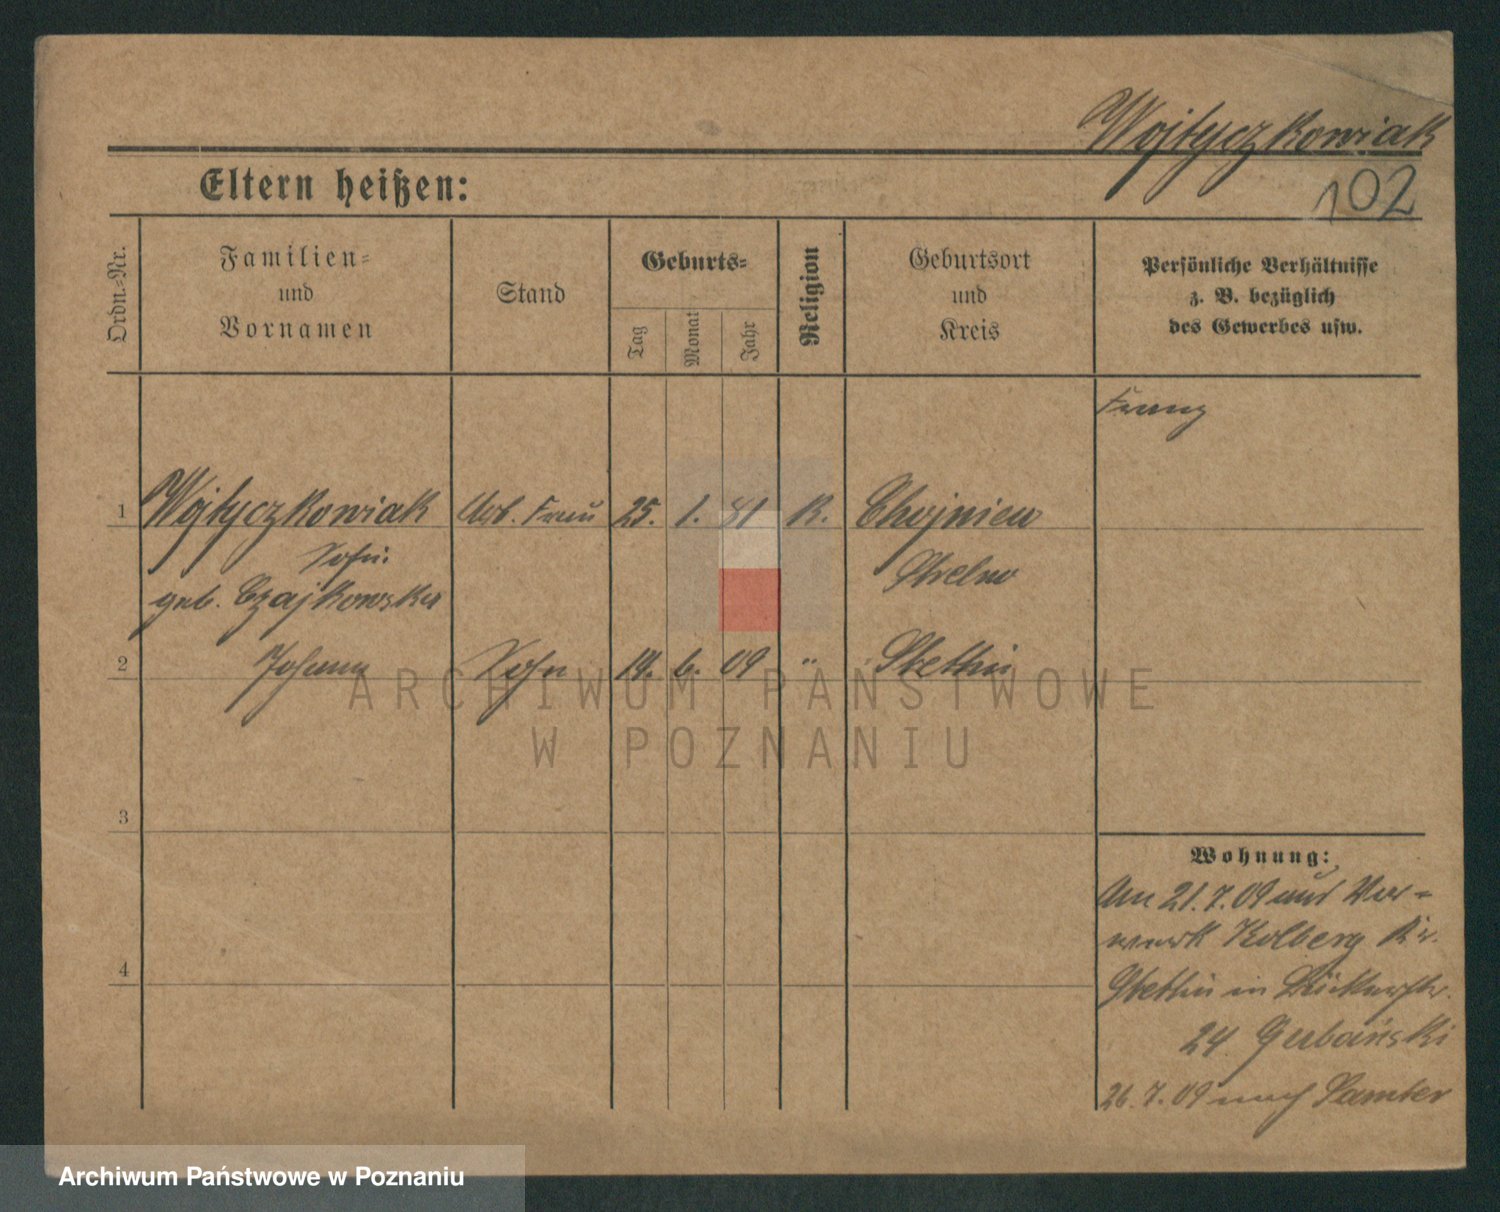 Wojtyczkowiak
102
Eltern heißen:
Ordn.-Nr.
Familien- und Vornamen
Stand
Geburts-
Tag
Monat
Jahr
Religion
Geburtsort und Kreis
Persönliche Verhältnisse z. B. bezüglich des Gewerbes usw.
Franz
1 Wojtyczkowiak Arb. Frau 25. 1. 81 K.
Sofie Strelno
geb. Czajkowska
2 Johann Sohn 19. 6. 09 " Stettin
3
4
Wohnung:
Am 21.7.09 aus Vor-
werk Kolberg Kr.
Stettin in
24 Gurbański
26.7.09 nach Samter
ARCHIWUM PAŃSTWOWE
W POZNANIU
Archiwum Państwowe w Poznaniu